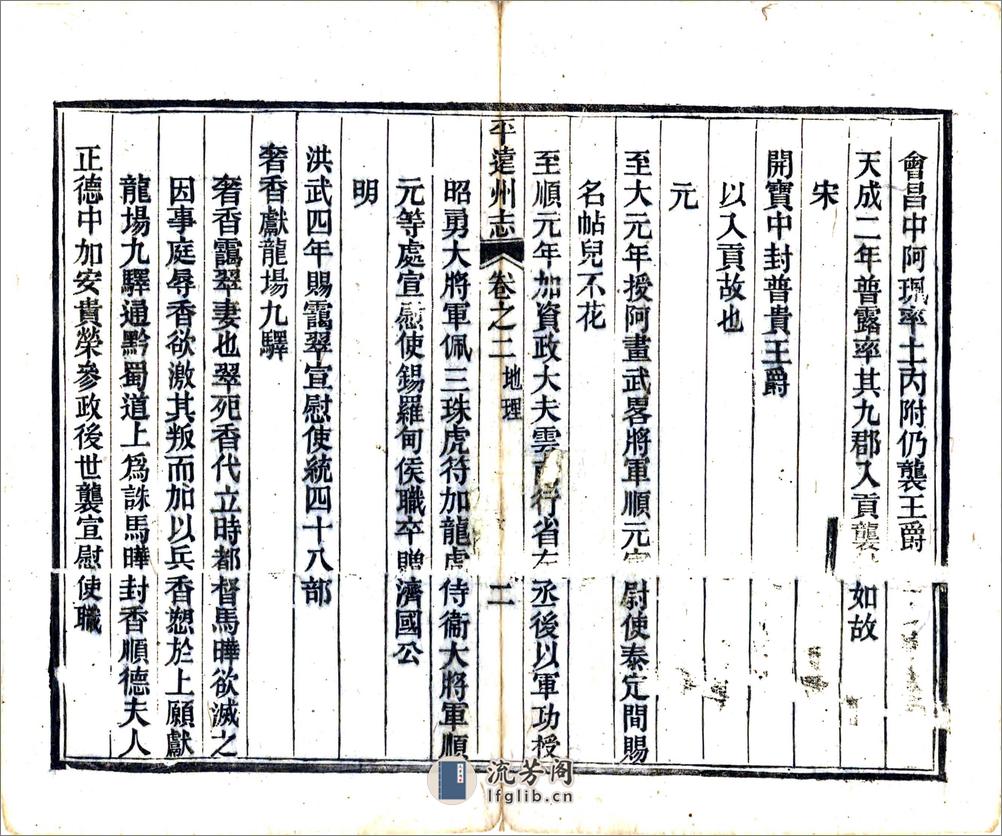 會昌中阿珮率土內附仍襲王爵
天成二年普露率其九郡入貢襲 如故
宋
開寶中封普貴王爵
以入貢故也
元
至大元年授阿畫武畧將軍順元宣慰使泰定間賜
名帖兒不花
至順元年加資政大夫雲南行省左丞後以軍功授
平遠州志 卷之二 地理 二
昭勇大將軍佩三珠虎符加龍虎侍衞大將軍順
元等處宣慰使錫羅甸侯職卒贈濟國公
明
洪武四年賜靄翠宣慰使統四十八部
奢香獻龍場九驛
奢香靄翠妻也翠死香代立時都督馬曄欲滅之
因事庭辱香欲激其叛而加以兵香愬於上願獻
龍場九驛通黔蜀道上為誅馬曄封香順德夫人
正德中加安貴榮參政後世襲宣慰使職
流芳阁
lfglib.cn